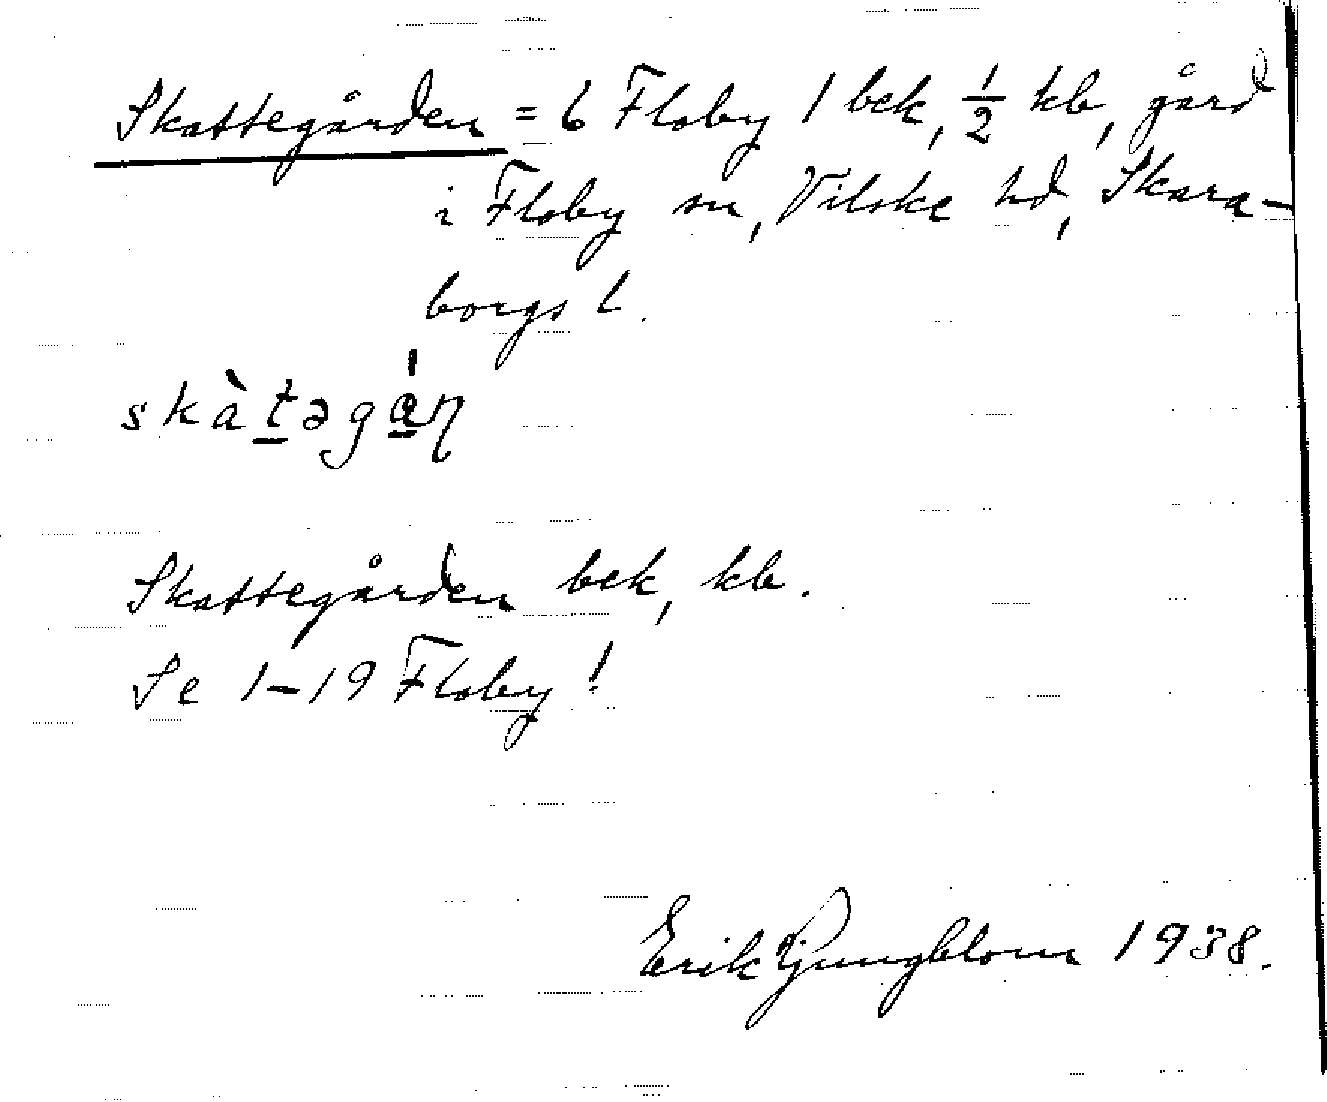 Skattegården = 6 Floby 1 bek, 1/2 kb, gård
i Floby sn, Vilske hd, Skara-
borgs l.
skàt̲əgá̲ɳ
Skattegården bek, kb.
Se 1-19 Floby!
Erik Ljungblom 1938.